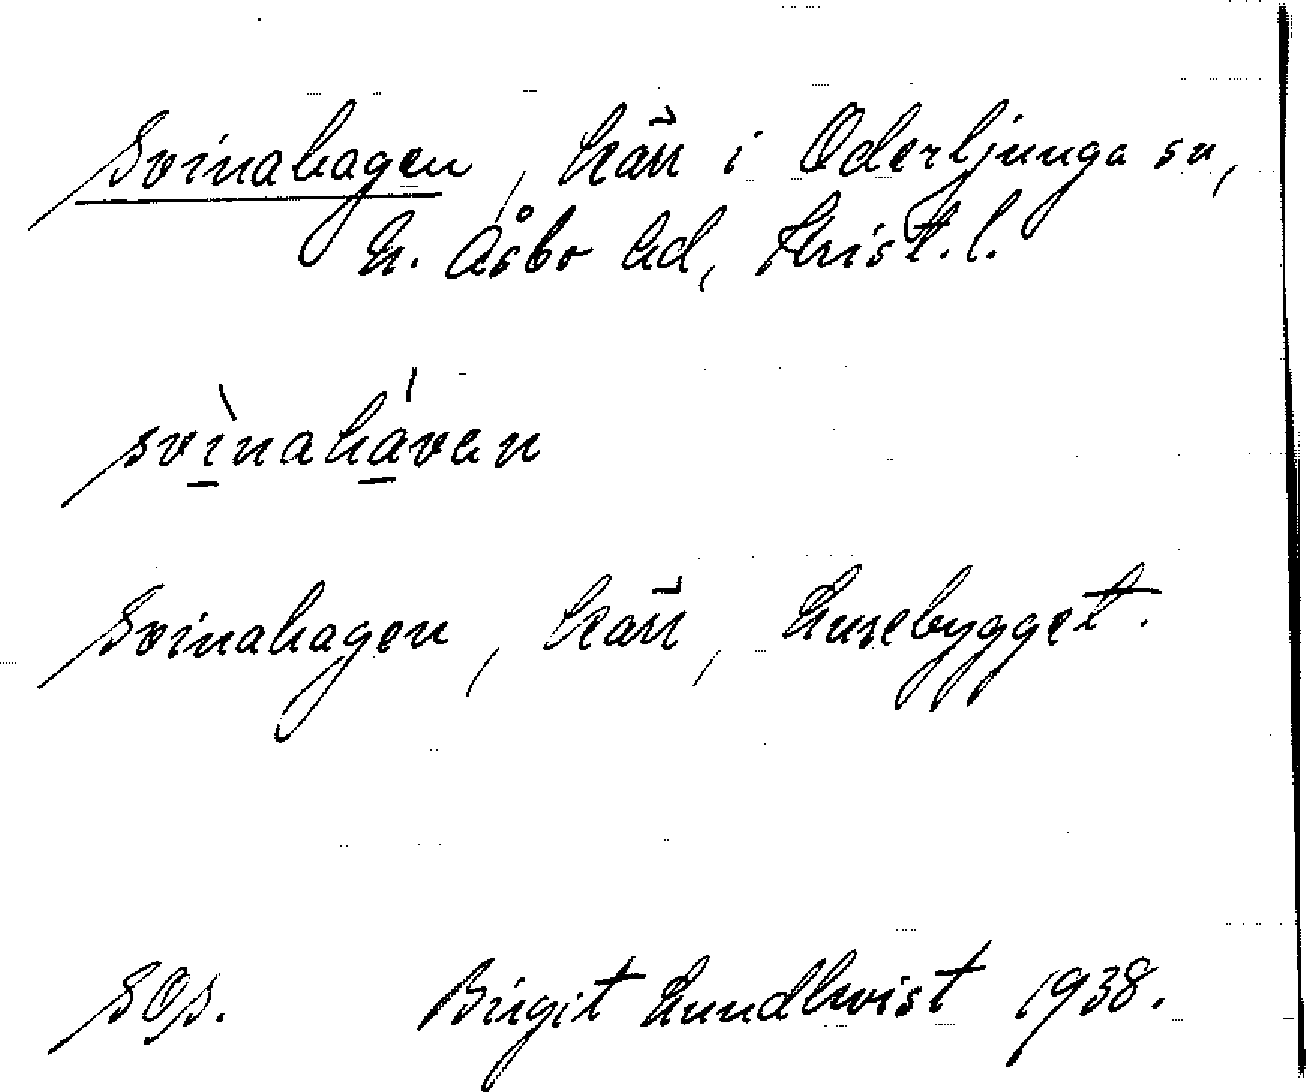 Svinahagen, kärr i Oderljunga sn,
N. Åsbo hd, Krist. l.
svìnaháven
Svinahagen, kärr, Lusebygget.
SOs. Birgit Lundkvist 1938.